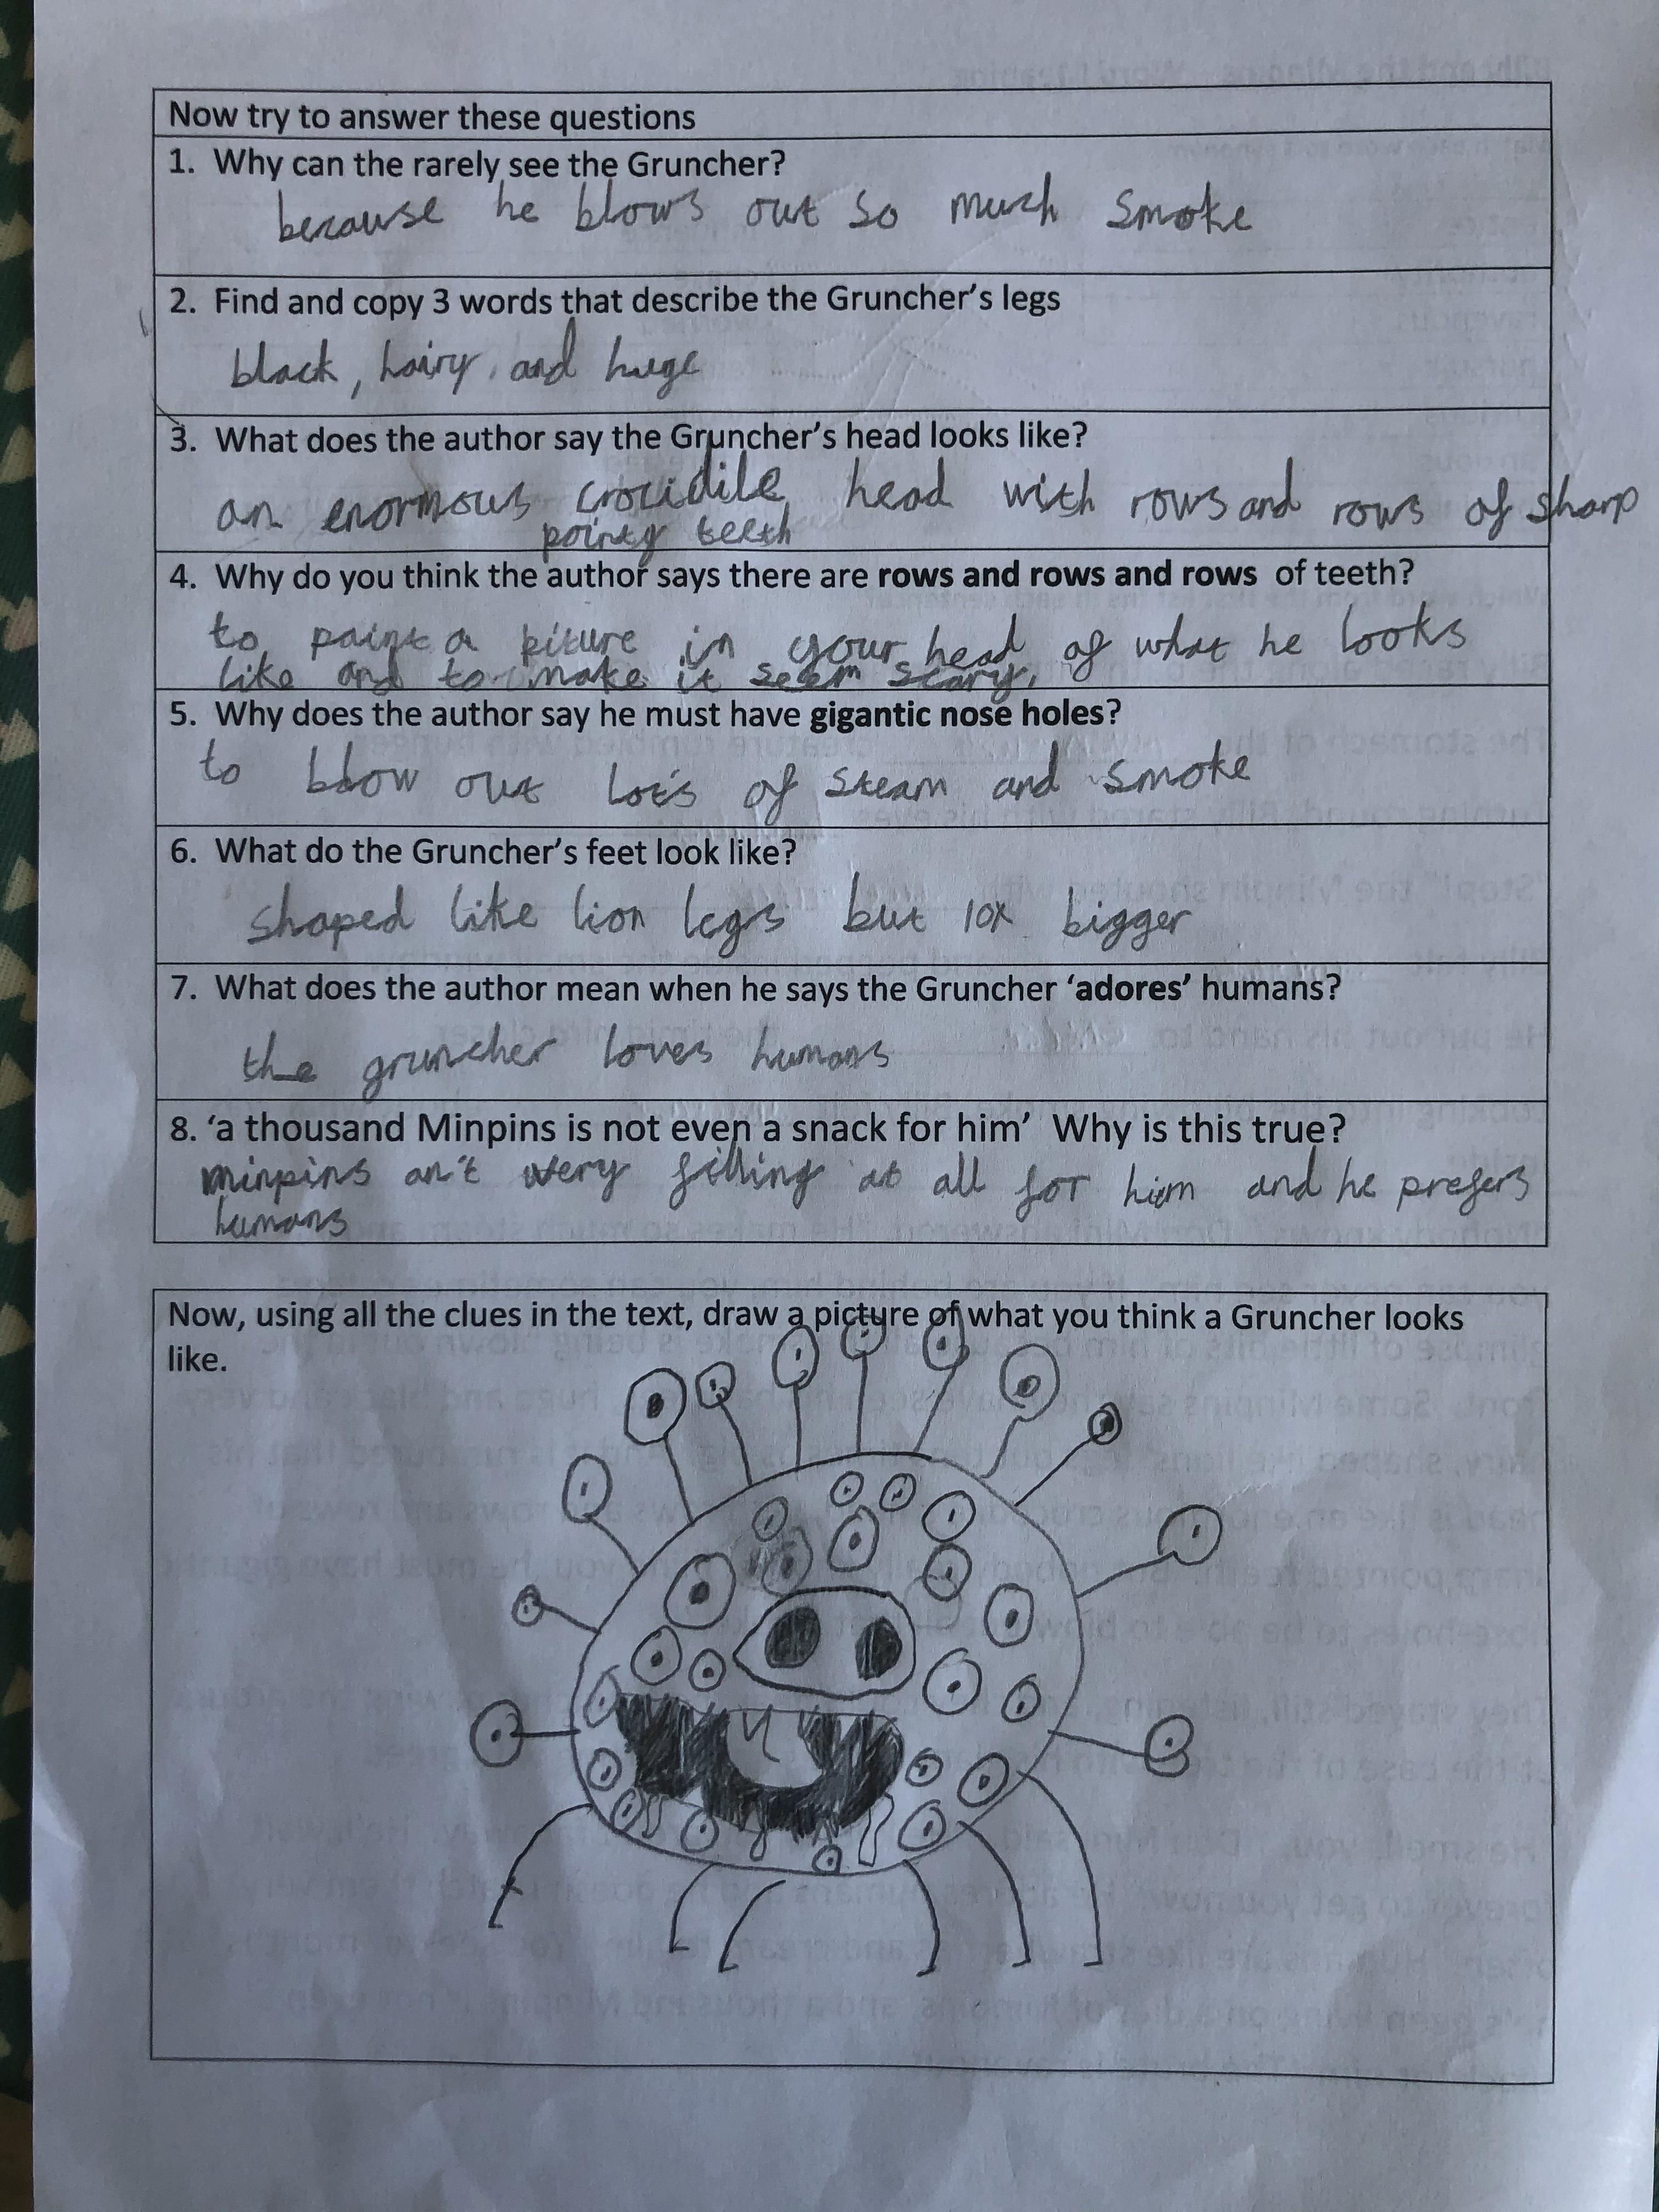 Now try to answer these questions
1. Why can the rarely see the Gruncher?
because he blows out so much smoke
2. Find and copy 3 words that describe the Gruncher's legs
black, hairy, and huge
3. What does the author say the Gruncher's head looks like?
an enormous crocidile head with rows and rows of sharp
pointy teeth
4. Why do you think the author says there are rows and rows and rows of teeth?
to paint a picture in your head of what he looks
like and to make it seem scary.
5. Why does the author say he must have gigantic nose holes?
to blow out lots of steam and smoke
6. What do the Gruncher's feet look like?
shaped like lion legs but 10x bigger
7. What does the author mean when he says the Gruncher 'adores' humans?
the gruncher loves humans
8. 'a thousand Minpins is not even a snack for him' Why is this true?
minpins an't very filling at all for him and he prefers
humans
Now, using all the clues in the text, draw a picture of what you think a Gruncher looks
like.